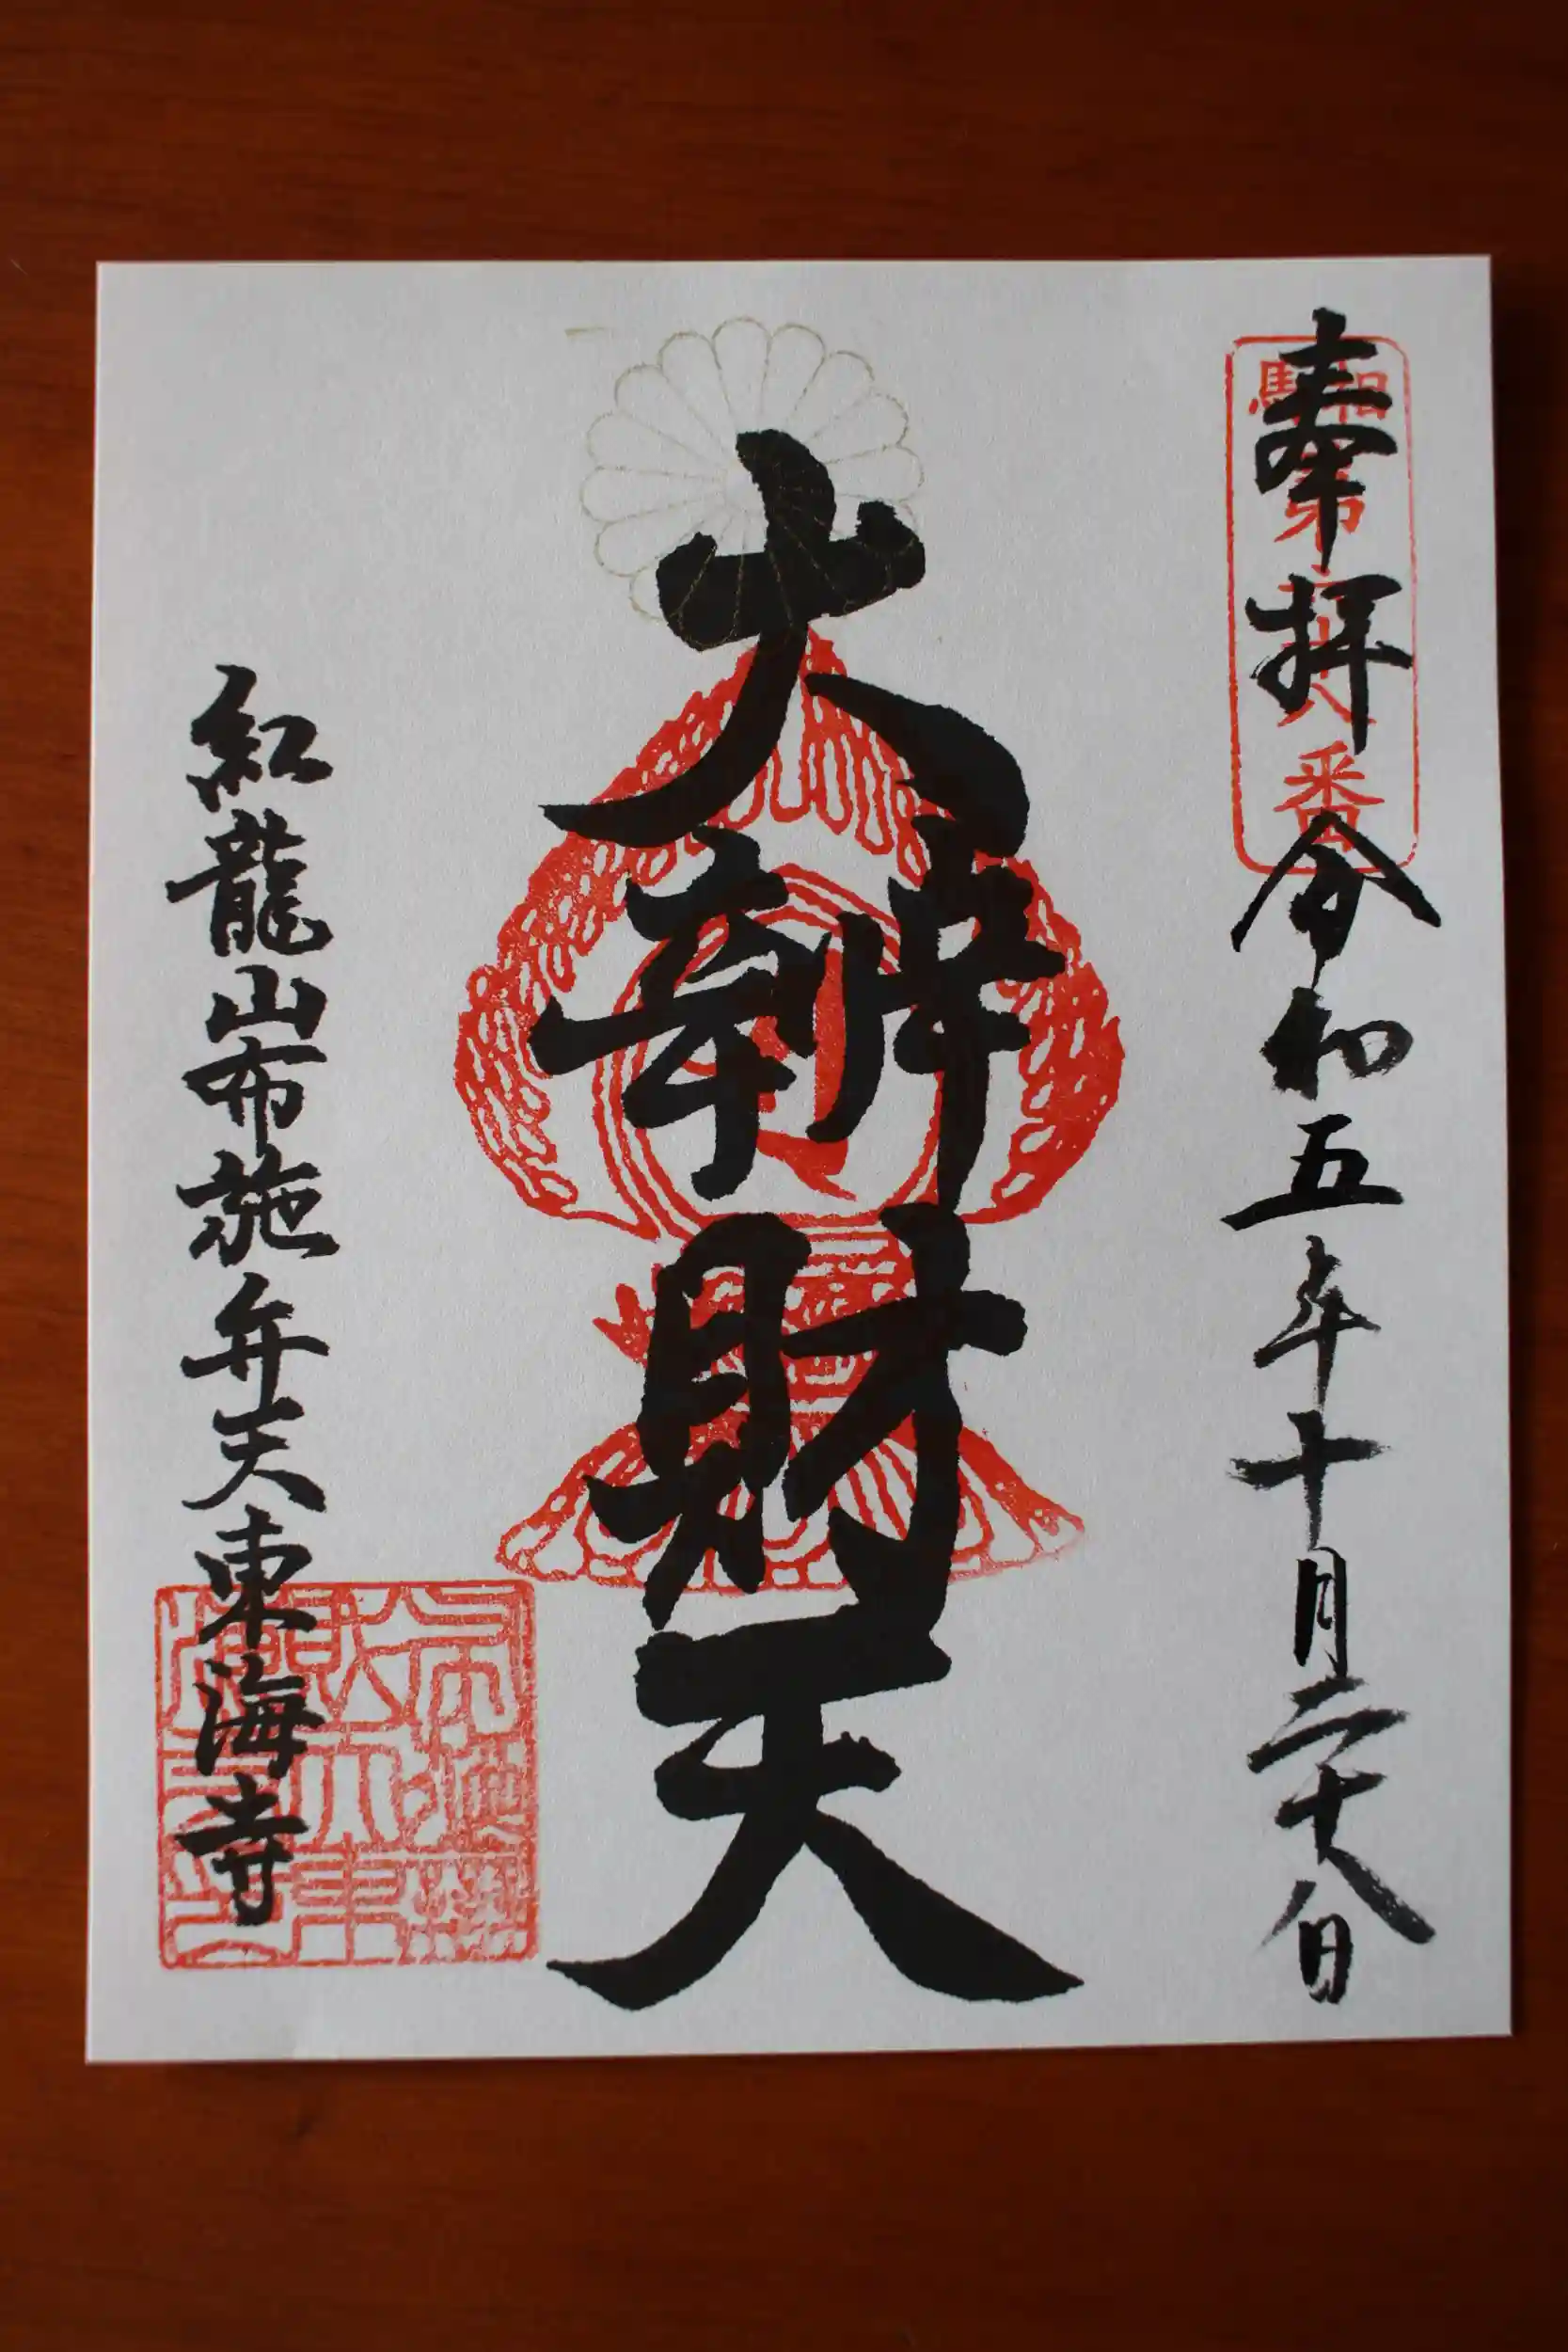 奉拝 令和五年十月二十八日
大辨財天
紅龍山布施弁天東海寺